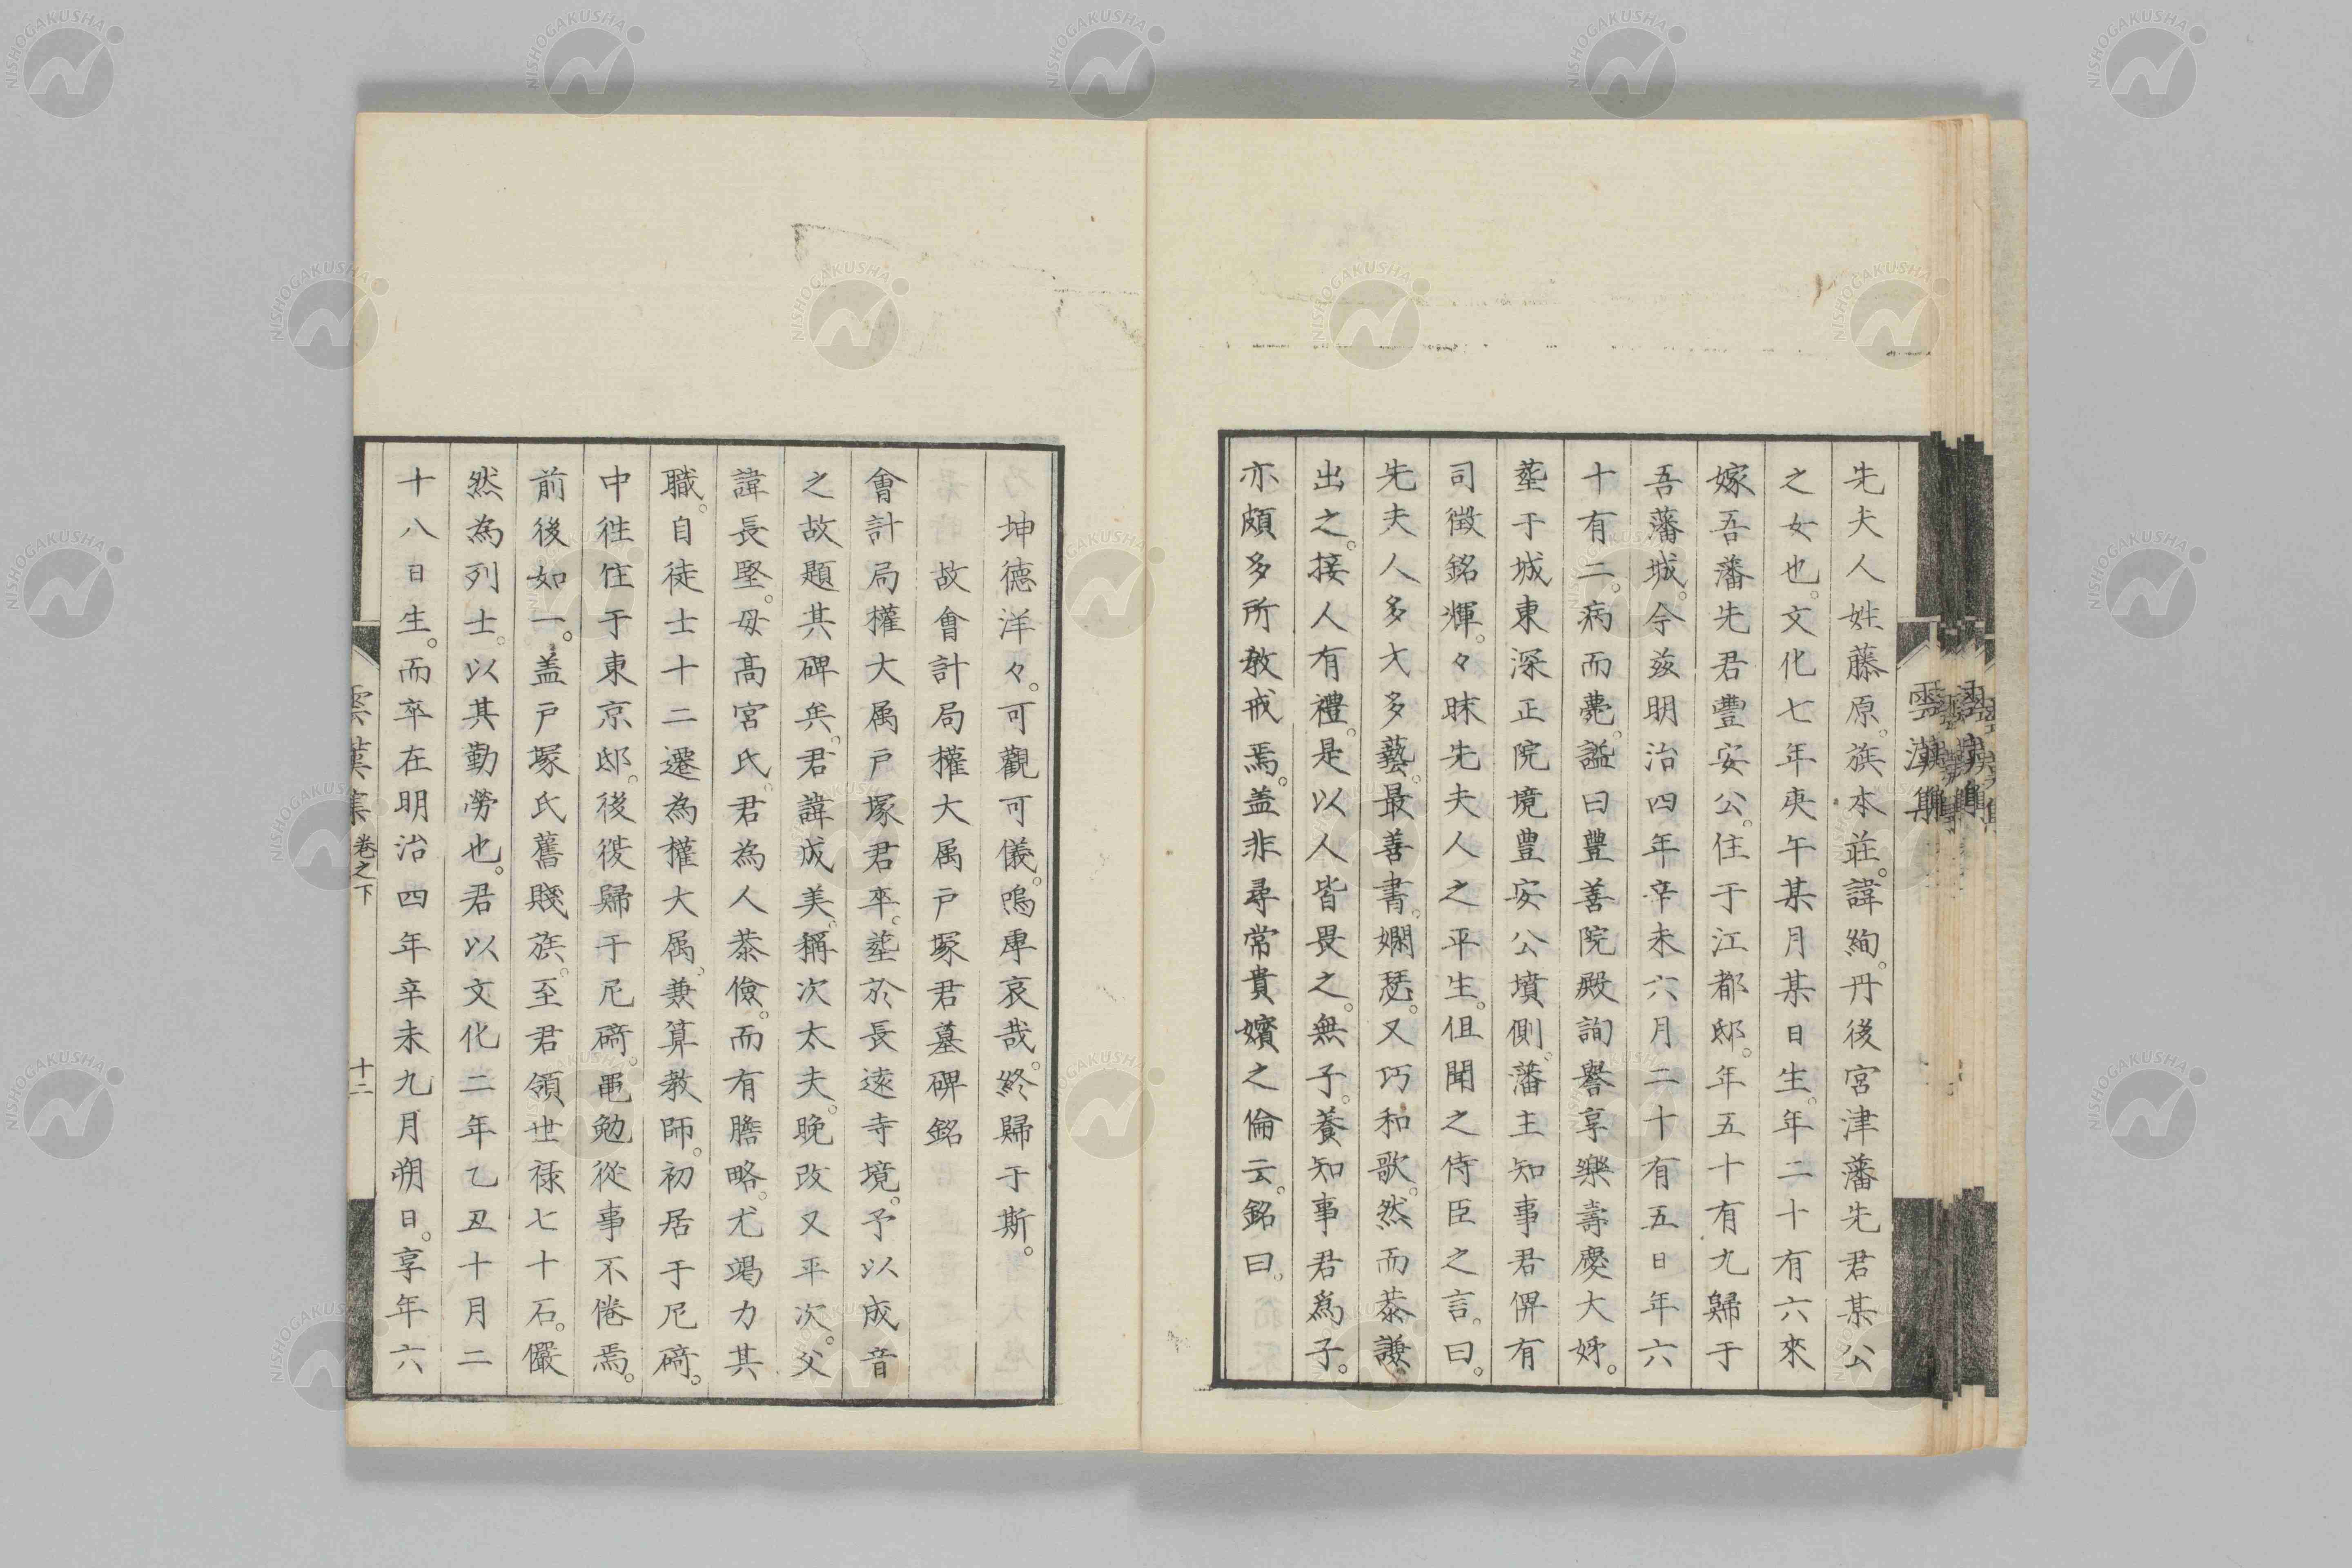 先夫人姓藤原。族本莊。諱絢。丹後宮津藩先君某公
之女也。文化七年庚午某月某日生。年二十有六來
嫁吾藩先君豐安公。住于江都邸。年五十有九歸于
吾藩城。今玆明治四年辛未六月二十有五日年六
十有二。病而薨。謚曰豊善院殿詢譽享樂壽慶大姊。
葬于城東深正院境豊安公墳側。藩主知事君俾有
司徵銘煇。々昧先夫人之平生。但聞之侍臣之言。曰。
先夫人多才多藝。最善書。嫻瑟。又巧和歌。然而恭謙
出之。接人有禮。是以人皆畏之。無子。養知事君爲子。
亦頗多所敎戒焉。蓋非尋常貴嬪之倫云。銘曰。
坤德洋々。可觀可儀。嗚虖哀哉。終歸于斯。
故會計局權大属戸塚君墓碑銘
會計局權大属戸塚君卒。葬於長遠寺境。予以成音
之故題其碑矣。君諱成美。稱次太夫。晩改又平次。父
諱長堅。母高宮氏。君為人恭儉。而有膽略。尤竭力其
職。自徒士十二遷為權大属。兼算教師。初居于尼碕。
中徃住于東京邸。後復歸于尼碕。黽勉從事不倦焉。
前後如一。盖戸塚氏舊賤族。至君領世禄七十石。儼
然為列士。以其勤勞也。君以文化二年乙丑十月二
十八日生。而卒在明治四年辛未九月朔日。享年六
雲漢集 卷之下 十二
雲漢集
NISHOGAKUSHA